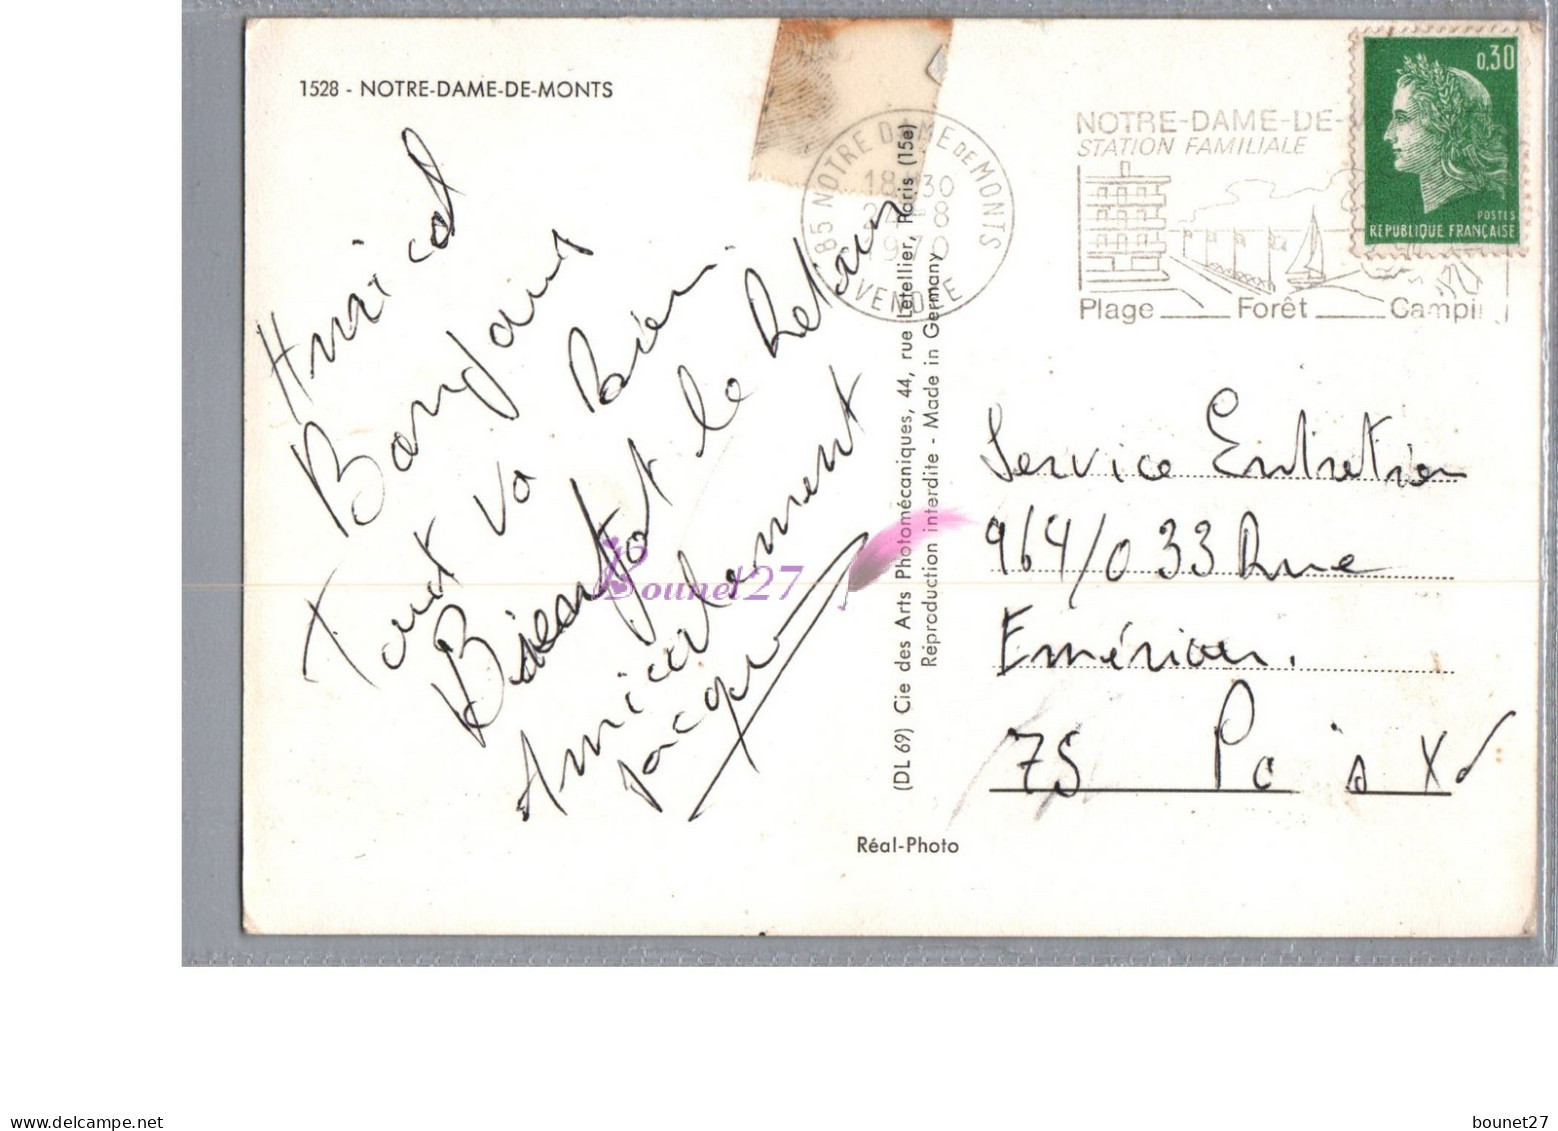 1528 - NOTRE-DAME-DE-MONTS
Amical
Bonjour
Tout va Bien
Bientot le Retour
Amicalement
Jacques
85 NOTRE DAME DE MONTS
18 30
27-8
1970
VENDEE
NOTRE-DAME-DE-
STATION FAMILIALE
Plage Forêt Campi
0,30
POSTES
REPUBLIQUE FRANÇAISE
(DL 69) Cie des Arts Photomécaniques, 44, rue Letellier, Paris (15e)
Réproduction interdite - Made in Germany
Service Entretien
964/033 Rue
Emériau.
75 Paris XV
Réal-Photo
Bounet27
https://www.delcampe.net
bounet27